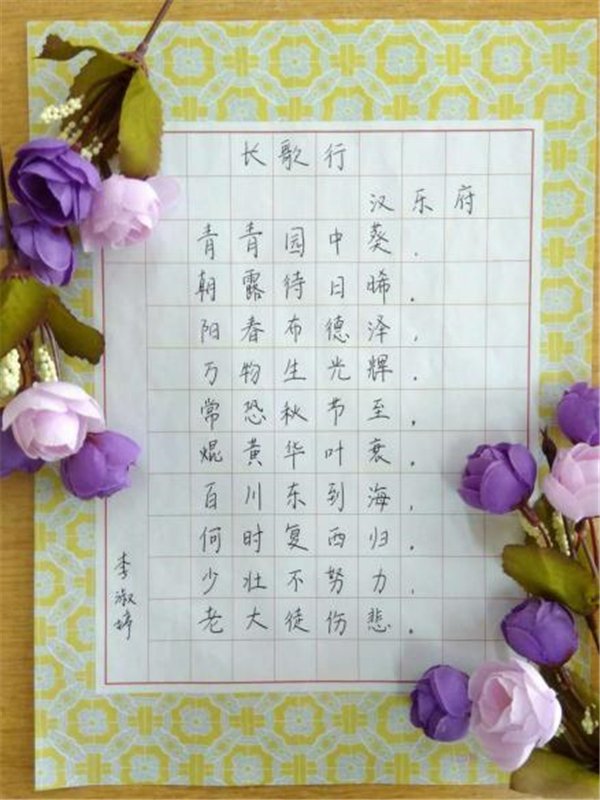 长歌行
汉乐府
青青园中葵，
朝露待日晞。
阳春布德泽，
万物生光辉。
常恐秋节至，
焜黄华叶衰。
百川东到海，
何时复西归。
少壮不努力，
老大徒伤悲。
李淑婷